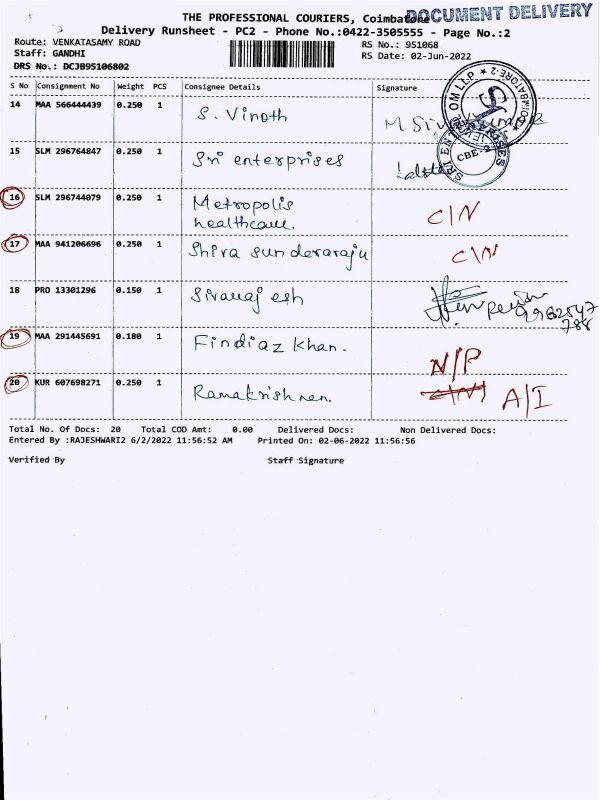 THE PROFESSIONAL COURIERS, Coimbatore
DOCUMENT DELIVERY
Delivery Runsheet - PC2 - Phone No.:0422-3505555 - Page No.:2
Route: VENKATASAMY ROAD
RS No.: 951068
Staff: GANDHI
RS Date: 02-Jun-2022
DRS No.: DCJB95106802
S No Consignment No Weight PCS Consignee Details Signature
14 MAA 566444439 0.250 1 S. Vinoth
15 SLM 296764847 0.250 1 Sri enterprises
CBE-2
16 SLM 296744079 0.250 1 Metropolis
healthcare. C/N
17 MAA 941206696 0.250 1 Shiva sundararaju C/N
18 PRO 13301296 0.150 1 Sivarajesh
19 MAA 291445691 0.180 1 Findiaz Khan. N/P
20 KUR 607698271 0.250 1 Ramakrishnan. C/N A/I
Total No. Of Docs: 20 Total COD Amt: 0.00 Delivered Docs: Non Delivered Docs:
Entered By :RAJESHWARI2 6/2/2022 11:56:52 AM Printed On: 02-06-2022 11:56:56
Verified By Staff Signature